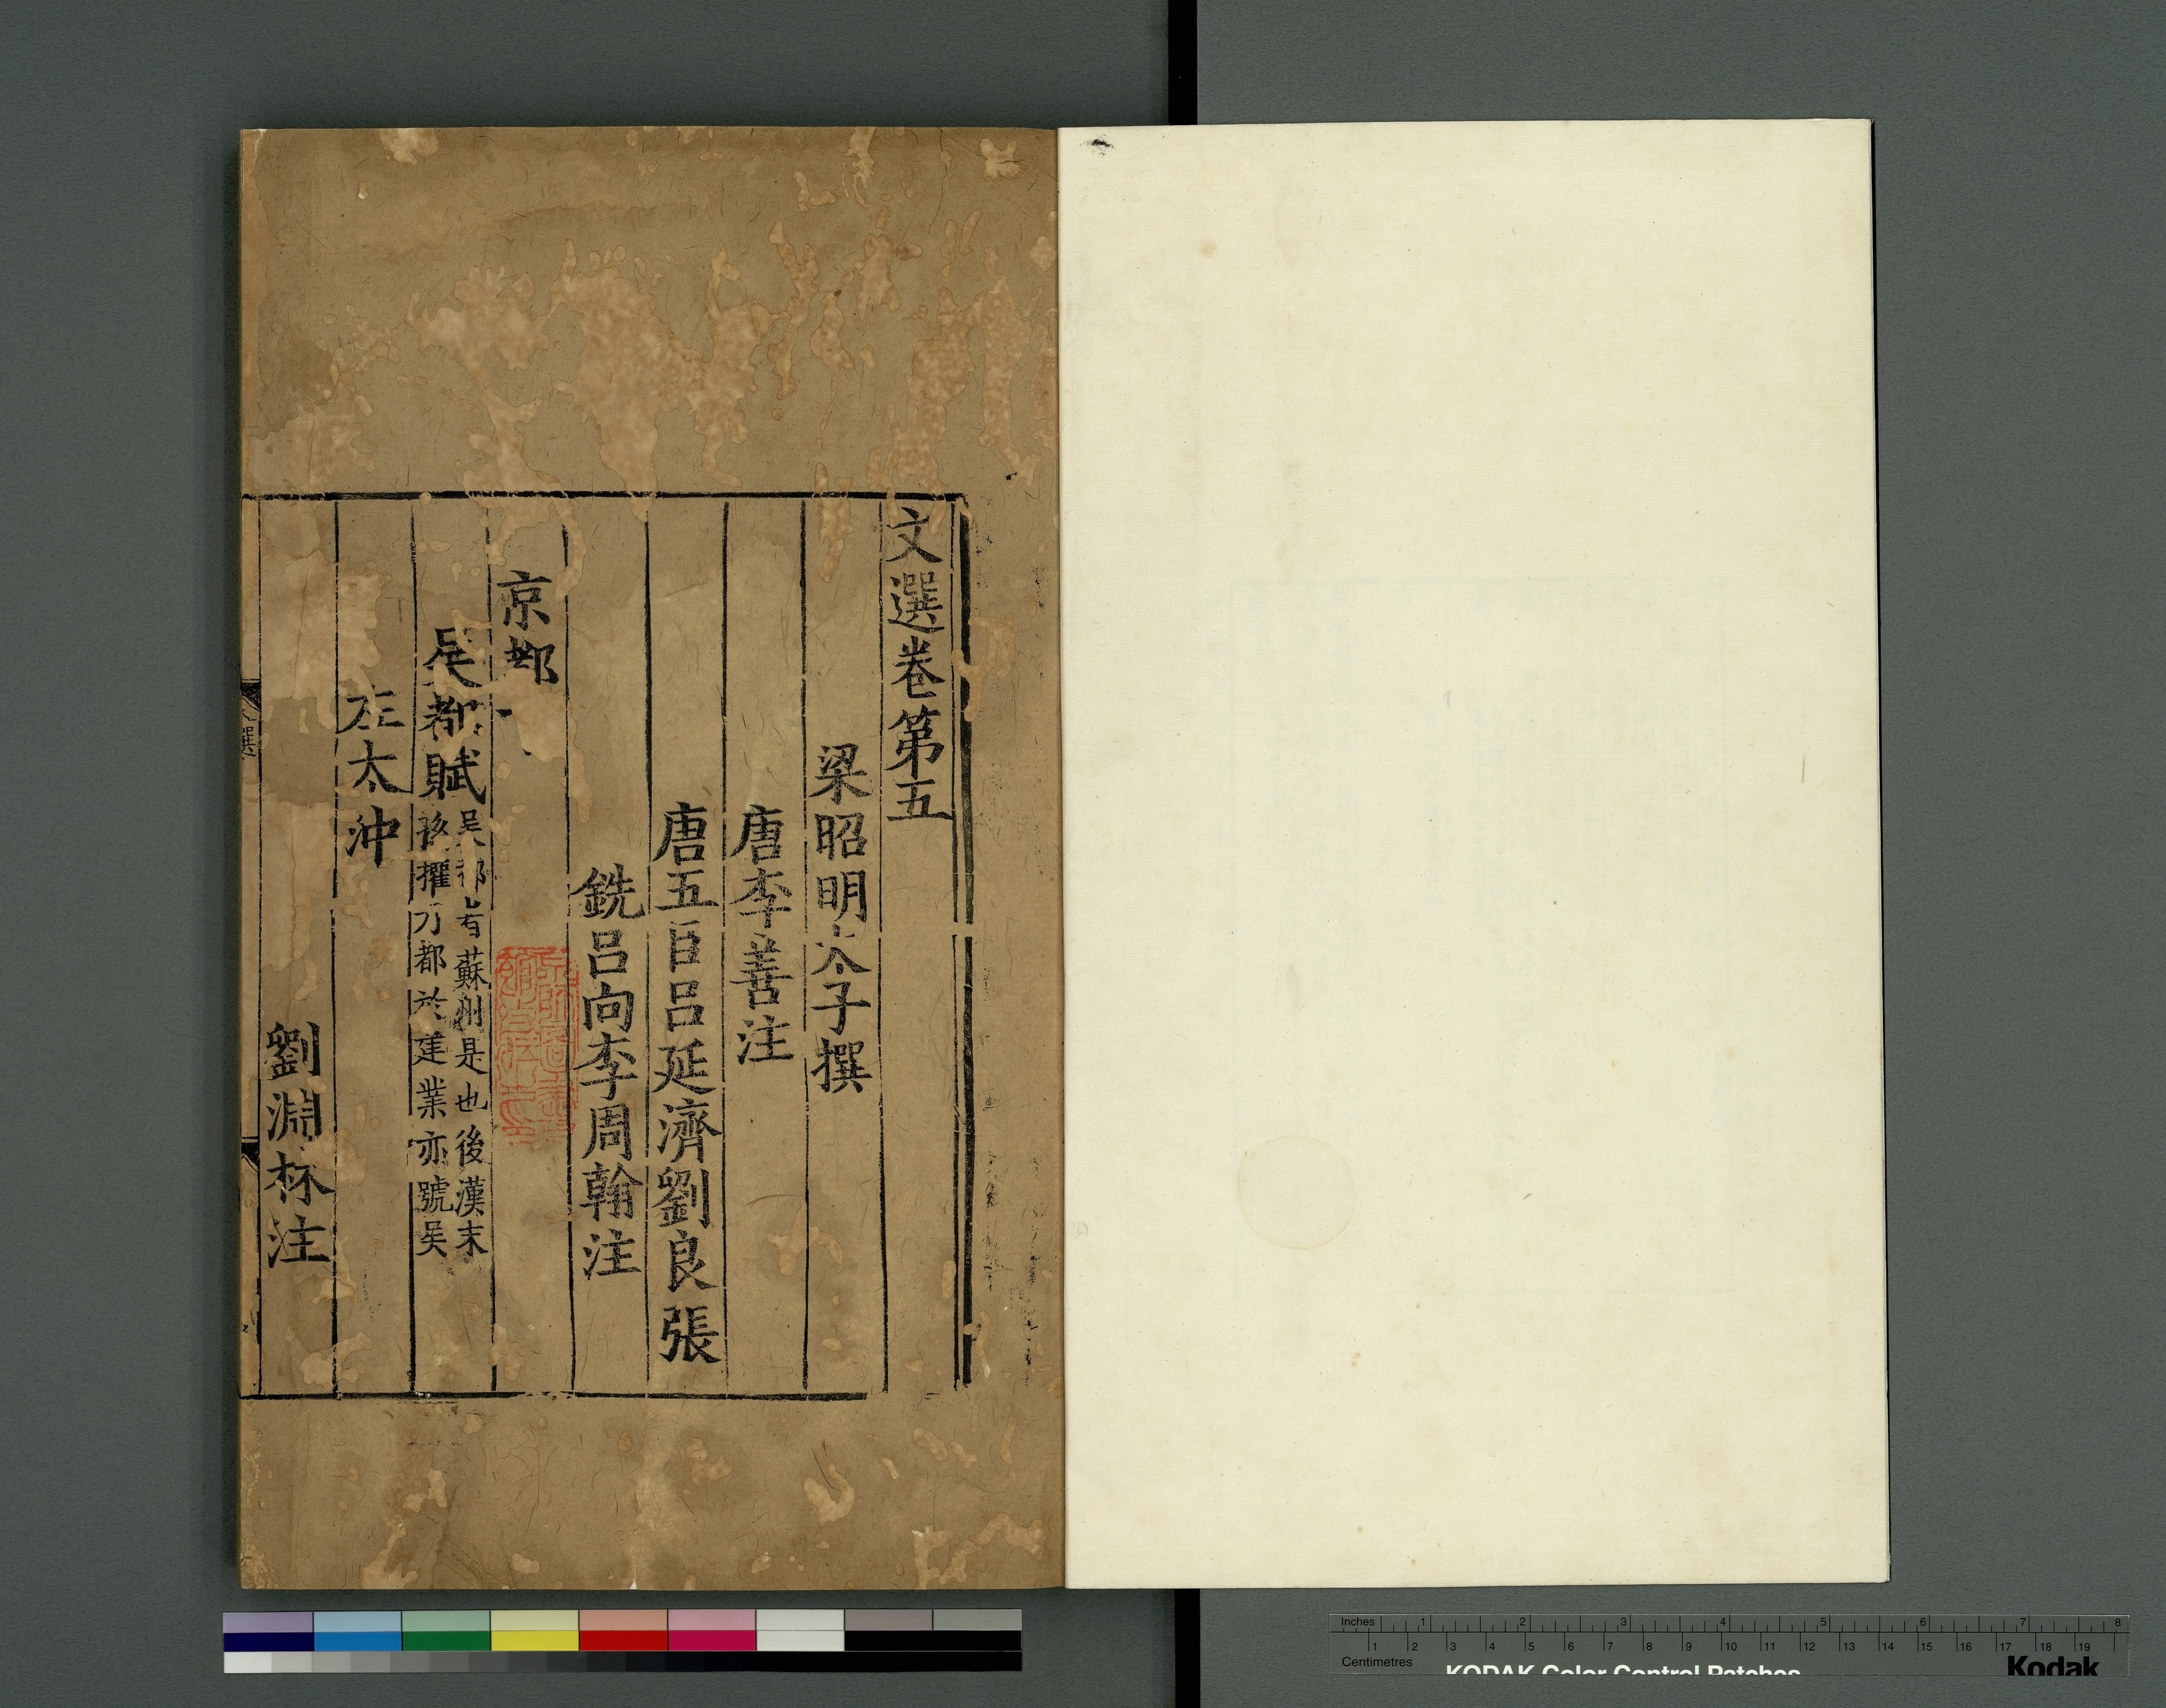 文選卷第五
梁昭明太子撰
唐李善注
唐五臣呂延濟劉良張
銑呂向李周翰注
京都
吳都賦
吳都者蘇州是也後漢末
孫權乃都於建業亦號吳
左太沖
劉淵林注
Inches 1 2 3 4 5 6 7 8
1 2 3 4 5 6 7 8 9 10 11 12 13 14 15 16 17 18 19
Centimetres
KODAK Color Control Patches
Kodak